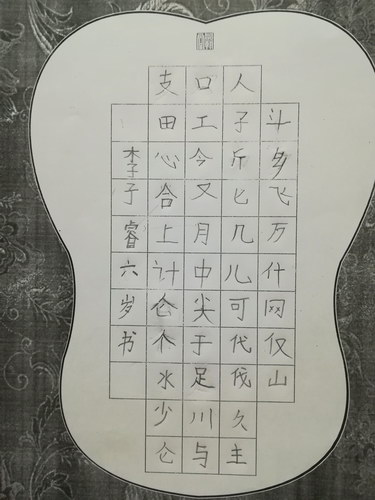 斗乡飞万什网仅山
人子斤匕几儿可代伐久主
口工今又月中尖于足川与
支田心合上计仑个水少仑
李子睿六岁书